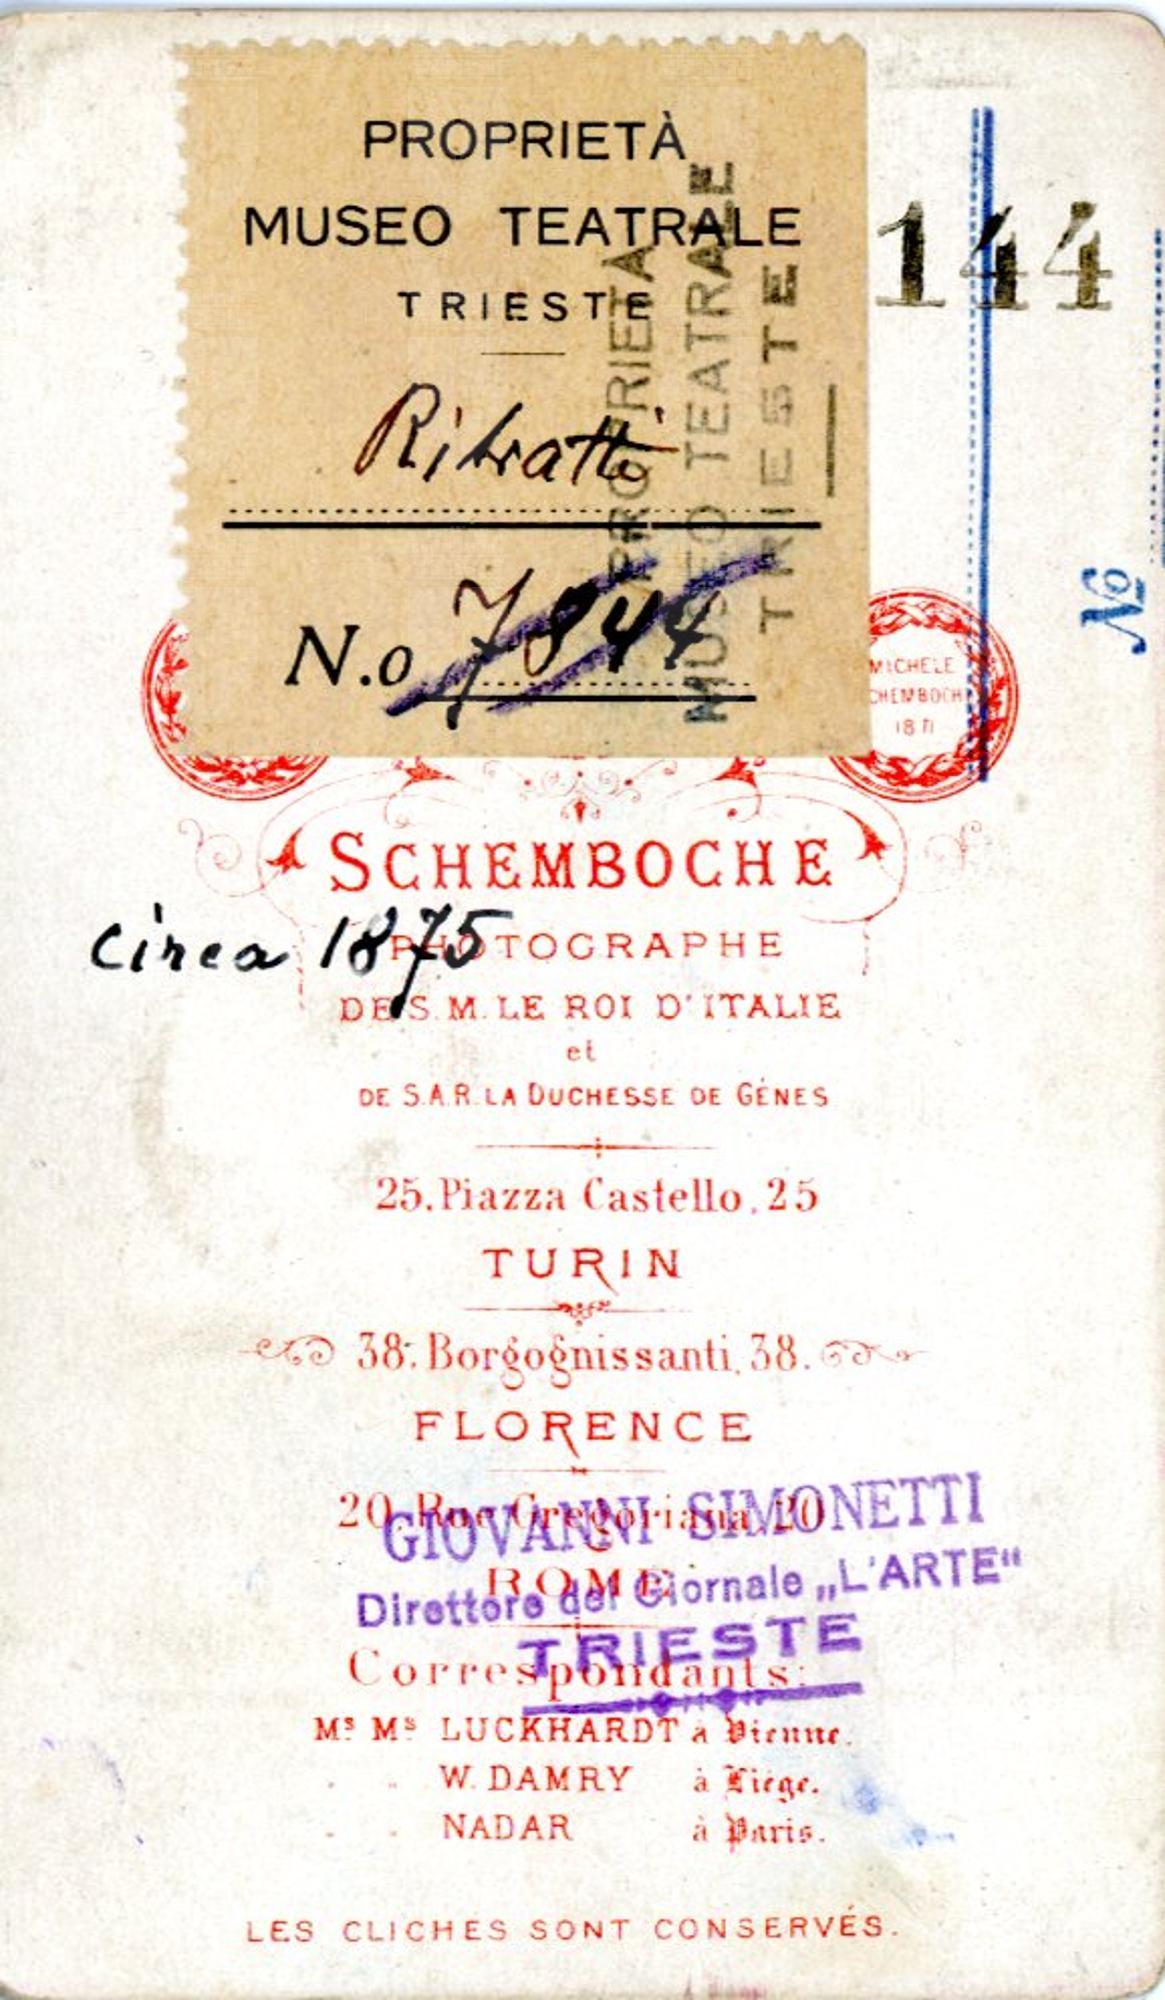 PROPRIETÀ
MUSEO TEATRALE
TRIESTE
Ritratti
N.o 7844
PROPRIETÀ
MUSEO TEATRALE
TRIESTE
144
No
MICHELE
CHEMBOCH
1871
SCHEMBOCHE
circa 1875
PHOTOGRAPHE
DE S. M. LE ROI D'ITALIE
et
DE S.A.R. LA DUCHESSE DE GÊNES
25. Piazza Castello, 25
TURIN
38. Borgognissanti, 38.
FLORENCE
20. Rue Gregoriana, 20
ROME
GIOVANNI SIMONETTI
Direttore del Giornale „L'ARTE“
TRIESTE
Correspondants:
Ms Ms LUCKHARDT à Vienne.
. . W. DAMRY à Liége.
. . NADAR à Paris.
LES CLICHÉS SONT CONSERVÉS.